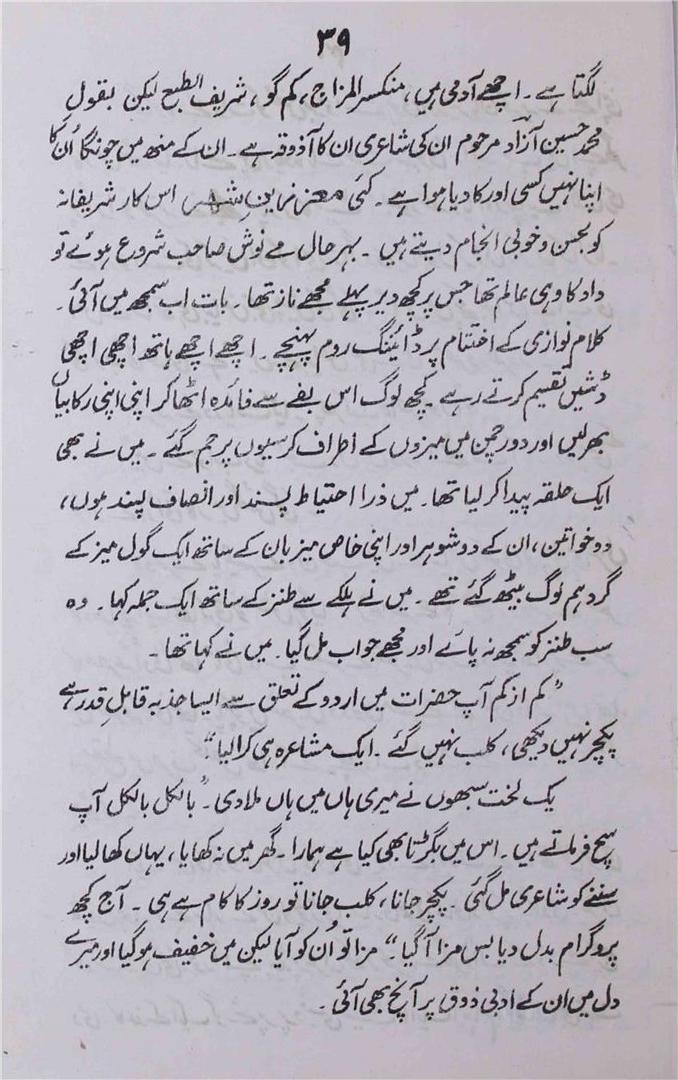 ۳۹
لگتا ہے۔ اچھے آدمی ہیں، منکسر المزاج، کم گو، شریف الطبع لیکن بقول
محمد حسین آزاد مرحوم ان کی شاعری ان کا آذوقہ ہے۔ ان کے منھ میں چونگا اُن کا
اپنا نہیں کسی اور کا دیا ہوا ہے۔ کئی معززینِ شہر اس کار شریفانہ
کو بحسن و خوبی انجام دیتے ہیں۔ بہرحال مے نوش صاحب شروع ہوئے تو
داد کا وہی عالم تھا جس پر کچھ دیر پہلے مجھے ناز تھا۔ بات اب سمجھ میں آئی۔
کلام نوازی کے اختتام پر ڈائننگ روم پہنچے۔ اچھے اچھے ہاتھ اچھی اچھی
ڈشیں تقسیم کرتے رہے۔ کچھ لوگ اس بفے سے فائدہ اٹھا کر اپنی اپنی رکابیاں
بھر لیں اور دور چمن میں میزوں کے اطراف کرسیوں پر جم گئے۔ میں نے بھی
ایک حلقہ پیدا کر لیا تھا۔ میں ذرا احتیاط پسند اور انصاف پسند ہوں،
دو خواتین، ان کے دو شوہر اور اپنی خاص میزبان کے ساتھ ایک گول میز کے
گرد ہم لوگ بیٹھ گئے تھے۔ میں نے ہلکے سے طنز کے ساتھ ایک جملہ کہا۔ وہ
سب طنز کو سمجھ نہ پائے اور مجھے جواب مل گیا۔ میں نے کہا تھا۔
”کم از کم آپ حضرات میں اردو کے تعلق سے ایسا جذبہ قابلِ قدر ہے
پکچر نہیں دیکھی، کلب نہیں گئے۔ ایک مشاعرہ ہی کرالیا“
یک لخت سبھوں نے میری ہاں میں ہاں ملا دی۔ ”بالکل بالکل آپ
سچ فرماتے ہیں۔ اس میں بگڑتا بھی کیا ہے ہمارا۔ گھر میں نہ کھایا، یہاں کھا لیا اور
سننے کو شاعری مل گئی۔ پکچر جانا، کلب جانا تو روز کا کام ہے ہی۔ آج کچھ
پروگرام بدل دیا بس مزا آ گیا۔“ مزا تو اُن کو آیا لیکن میں خفیف ہو گیا اور میرے
دل میں ان کے ادبی ذوق پر آنچ بھی آئی۔